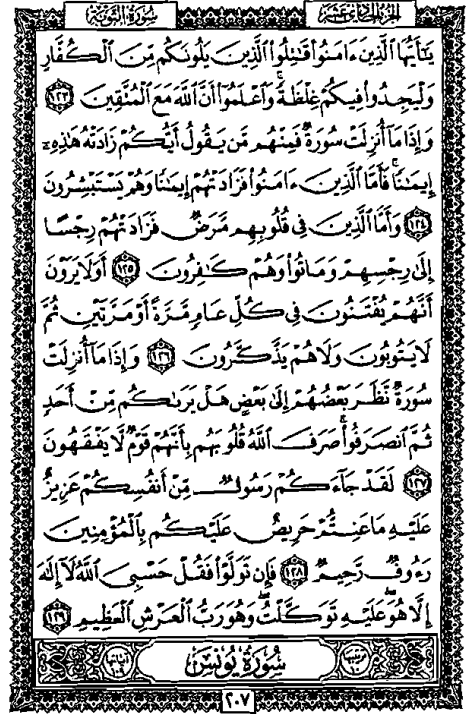 سورة التوبة الجزء الحادي عشر
يَـٰٓأَيُّهَا ٱلَّذِينَ ءَامَنُوا۟ قَـٰتِلُوا۟ ٱلَّذِينَ يَلُونَكُم مِّنَ ٱلْكُفَّارِ
وَلْيَجِدُوا۟ فِيكُمْ غِلْظَةً ۚ وَٱعْلَمُوٓا۟ أَنَّ ٱللَّهَ مَعَ ٱلْمُتَّقِينَ ١٢٣
وَإِذَا مَآ أُنزِلَتْ سُورَةٌ فَمِنْهُم مَّن يَقُولُ أَيُّكُمْ زَادَتْهُ هَـٰذِهِۦٓ
إِيمَـٰنًا ۚ فَأَمَّا ٱلَّذِينَ ءَامَنُوا۟ فَزَادَتْهُمْ إِيمَـٰنًا وَهُمْ يَسْتَبْشِرُونَ
١٢٤ وَأَمَّا ٱلَّذِينَ فِى قُلُوبِهِم مَّرَضٌ فَزَادَتْهُمْ رِجْسًا
إِلَىٰ رِجْسِهِمْ وَمَاتُوا۟ وَهُمْ كَـٰفِرُونَ ١٢٥ أَوَلَا يَرَوْنَ
أَنَّهُمْ يُفْتَنُونَ فِى كُلِّ عَامٍ مَّرَّةً أَوْ مَرَّتَيْنِ ثُمَّ
لَا يَتُوبُونَ وَلَا هُمْ يَذَّكَّرُونَ ١٢٦ وَإِذَا مَآ أُنزِلَتْ
سُورَةٌ نَّظَرَ بَعْضُهُمْ إِلَىٰ بَعْضٍ هَلْ يَرَىٰكُم مِّنْ أَحَدٍ
ثُمَّ ٱنصَرَفُوا۟ ۚ صَرَفَ ٱللَّهُ قُلُوبَهُم بِأَنَّهُمْ قَوْمٌ لَّا يَفْقَهُونَ
١٢٧ لَقَدْ جَآءَكُمْ رَسُولٌ مِّنْ أَنفُسِكُمْ عَزِيزٌ
عَلَيْهِ مَا عَنِتُّمْ حَرِيصٌ عَلَيْكُم بِٱلْمُؤْمِنِينَ
رَءُوفٌ رَّحِيمٌ ١٢٨ فَإِن تَوَلَّوْا۟ فَقُلْ حَسْبِىَ ٱللَّهُ لَآ إِلَـٰهَ
إِلَّا هُوَ ۖ عَلَيْهِ تَوَكَّلْتُ ۖ وَهُوَ رَبُّ ٱلْعَرْشِ ٱلْعَظِيمِ ١٢٩
سُورَةُ يُونُسَ
٢٠٧